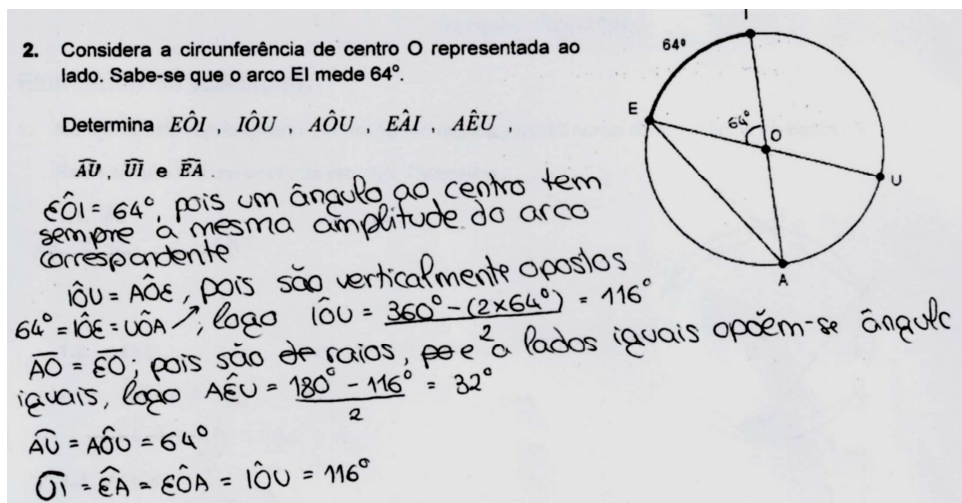 2. Considera a circunferência de centro O representada ao
lado. Sabe-se que o arco EI mede 64º.
Determina EÔI , IÔU AÔU EÂI AÊU
A͡U , U͡I e E͡A .
EÔI = 64º, pois um ângulo ao centro tem
sempre a mesma amplitude do arco
correspondente
IÔU = AÔE, pois são verticalmente opostos
64º = IÔE = UÔA ↗; logo IÔU = (360º - (2×64º))/2 = 116º
A̅O̅ = E̅O̅; pois são raios, e a lados iguais opõem-se ângulo
iguais, logo AÊU = (180º - 116º)/2 = 32º
A͡U = AÔU = 64º
U͡I = E͡A = EÔA = IÔU = 116º
I
64º
E
64º
O
U
A